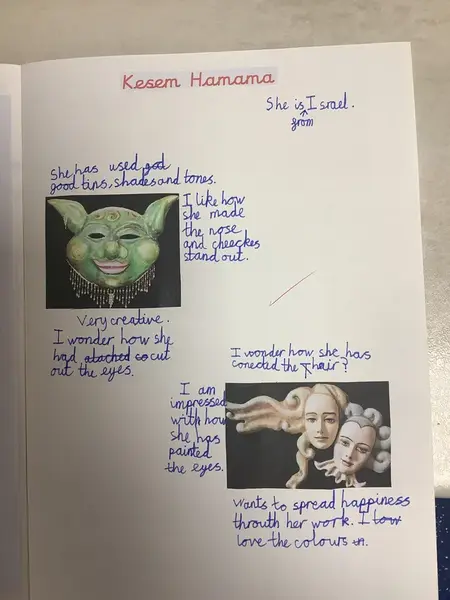 Kesem Hamama
She is Israel.
from
She has used god
good tins, shades and tones.
I like how
she made
the nose
and cheeckes
stand out.
Very creative.
I wonder how she
had atached co cut
out the eyes.
I wonder how she has
conected the hair?
I am
impressed
with how
she has
painted
the eyes.
Wants to spread happiness
throuth her work. I low
love the colours